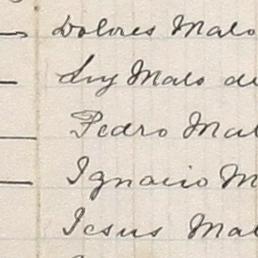 Dolores Malo
Luz Malo de
Pedro Mal
Ignacio M
Jesus Mal